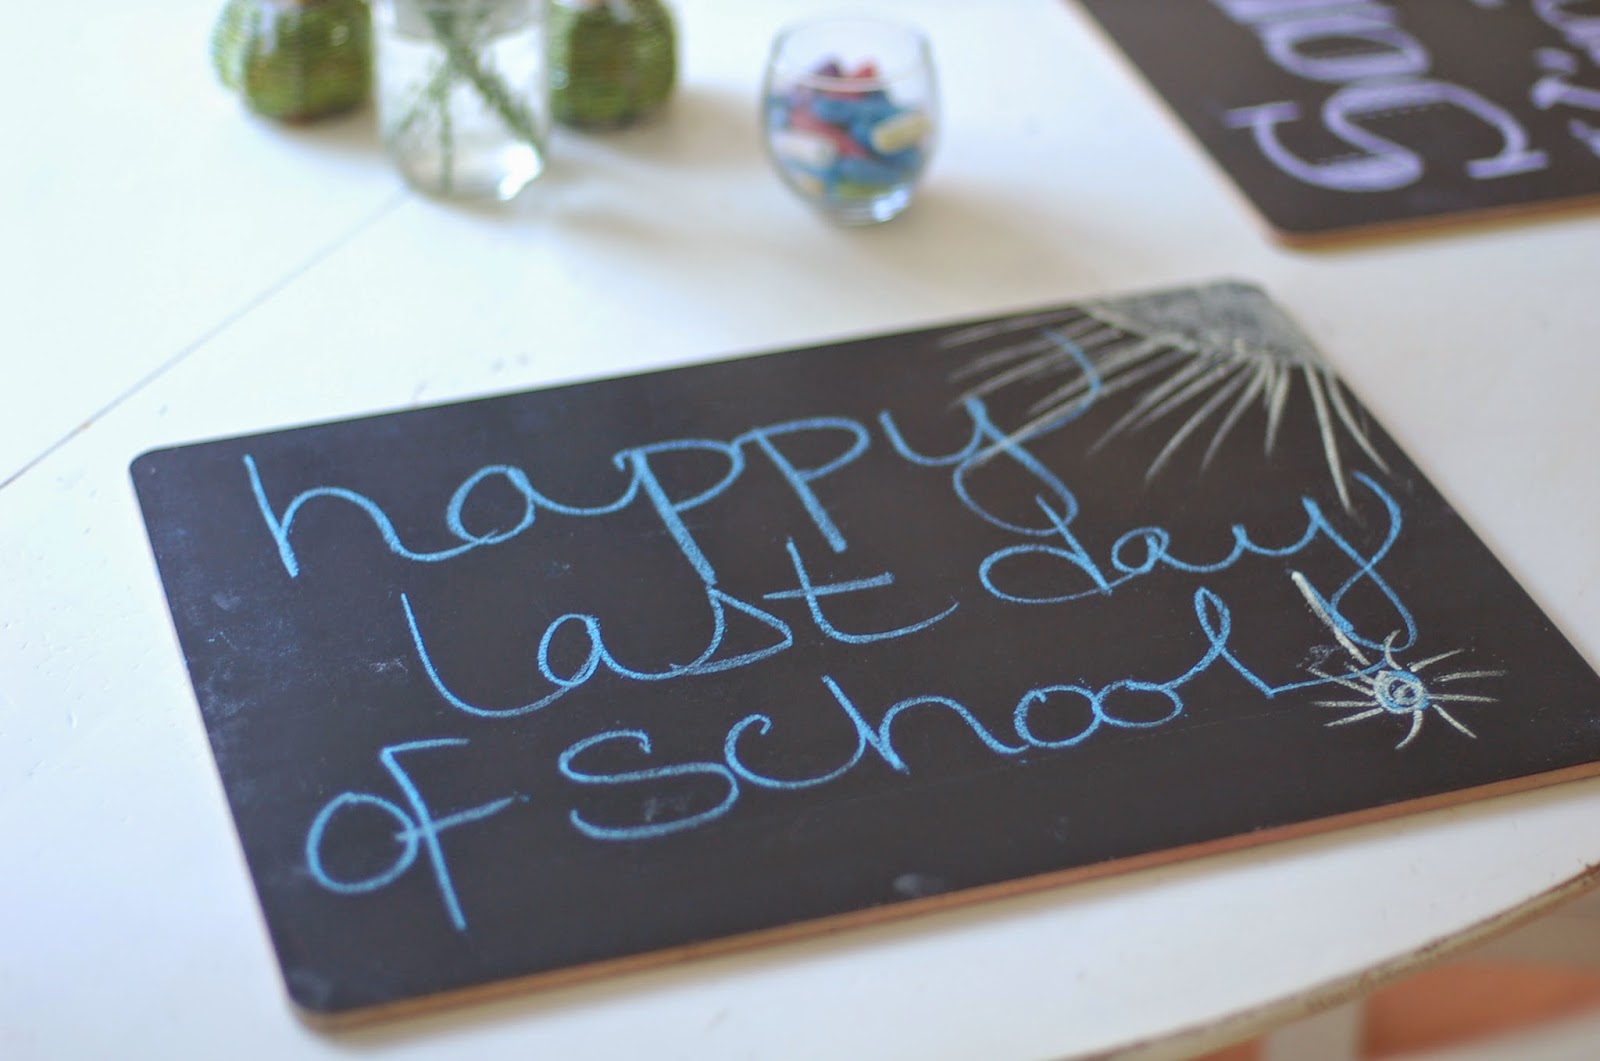 happy
last day
of school!